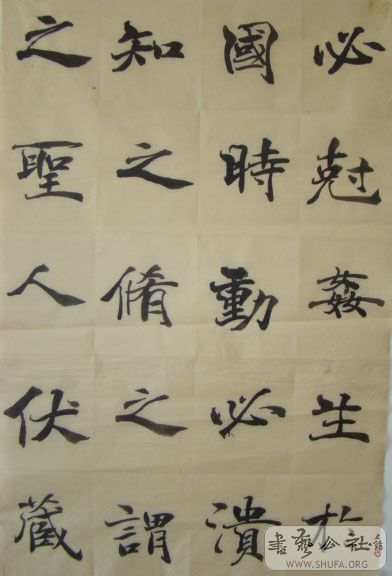 必尅姦生於
國時動必潰
知之脩之謂
之聖人伏藏
書藝公社
WWW.SHUFA.ORG